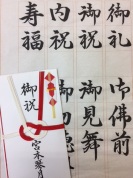 御礼
御祝
内祝
寿福
御佛前
御見舞
御祝
宮本